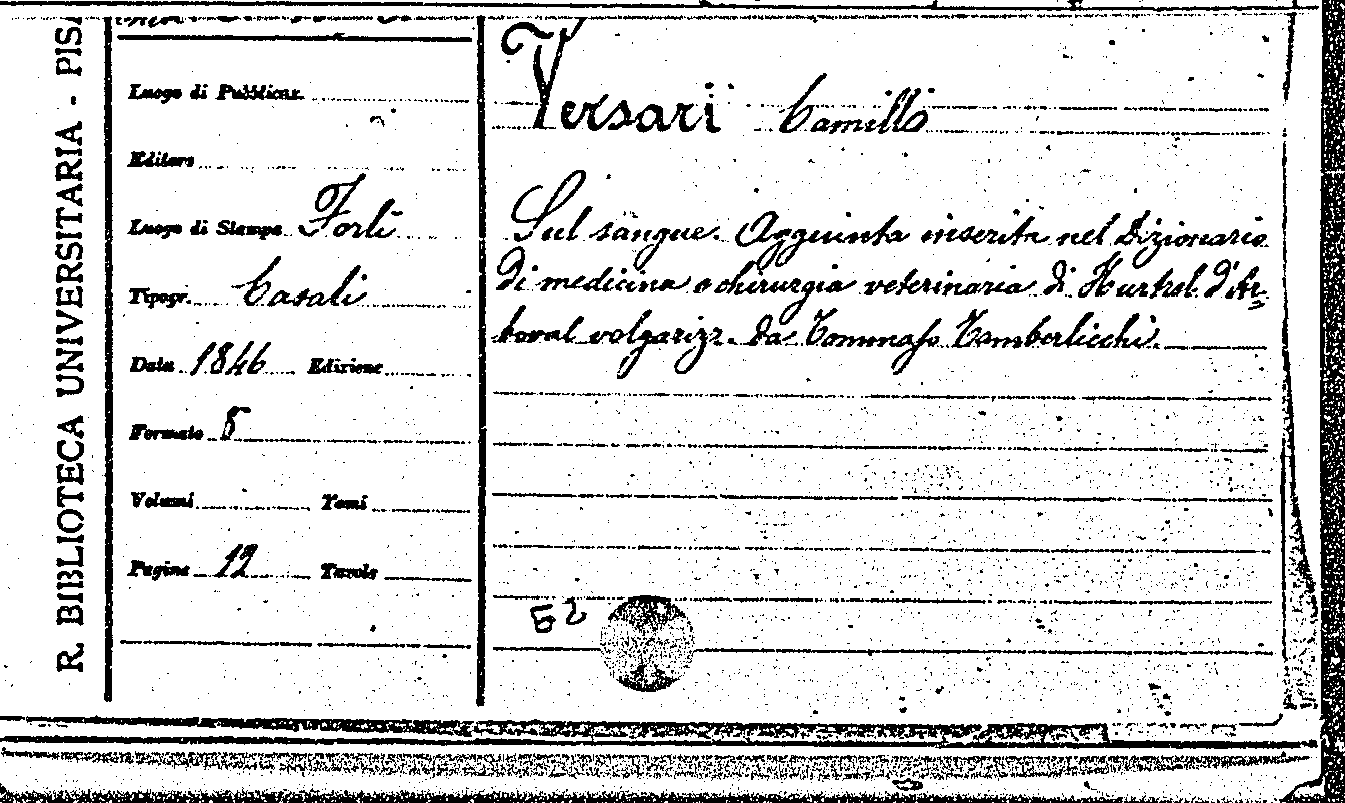 R. BIBLIOTECA UNIVERSITARIA - PIS
Luogo di Pubblicaz.
Editore
Luogo di Stampa Forlì
Tipogr. Casali
Data 1846 Edizione
Formato 8
Volumi Tomi
Pagine 12 Tavole
Versari Camillo
Sul sangue. Aggiunta inserita nel Dizionario
di medicina e chirurgia veterinaria di Hurtrel d'Ar=
boval volgarizz. da Tommaso Tamberlicchi.
52